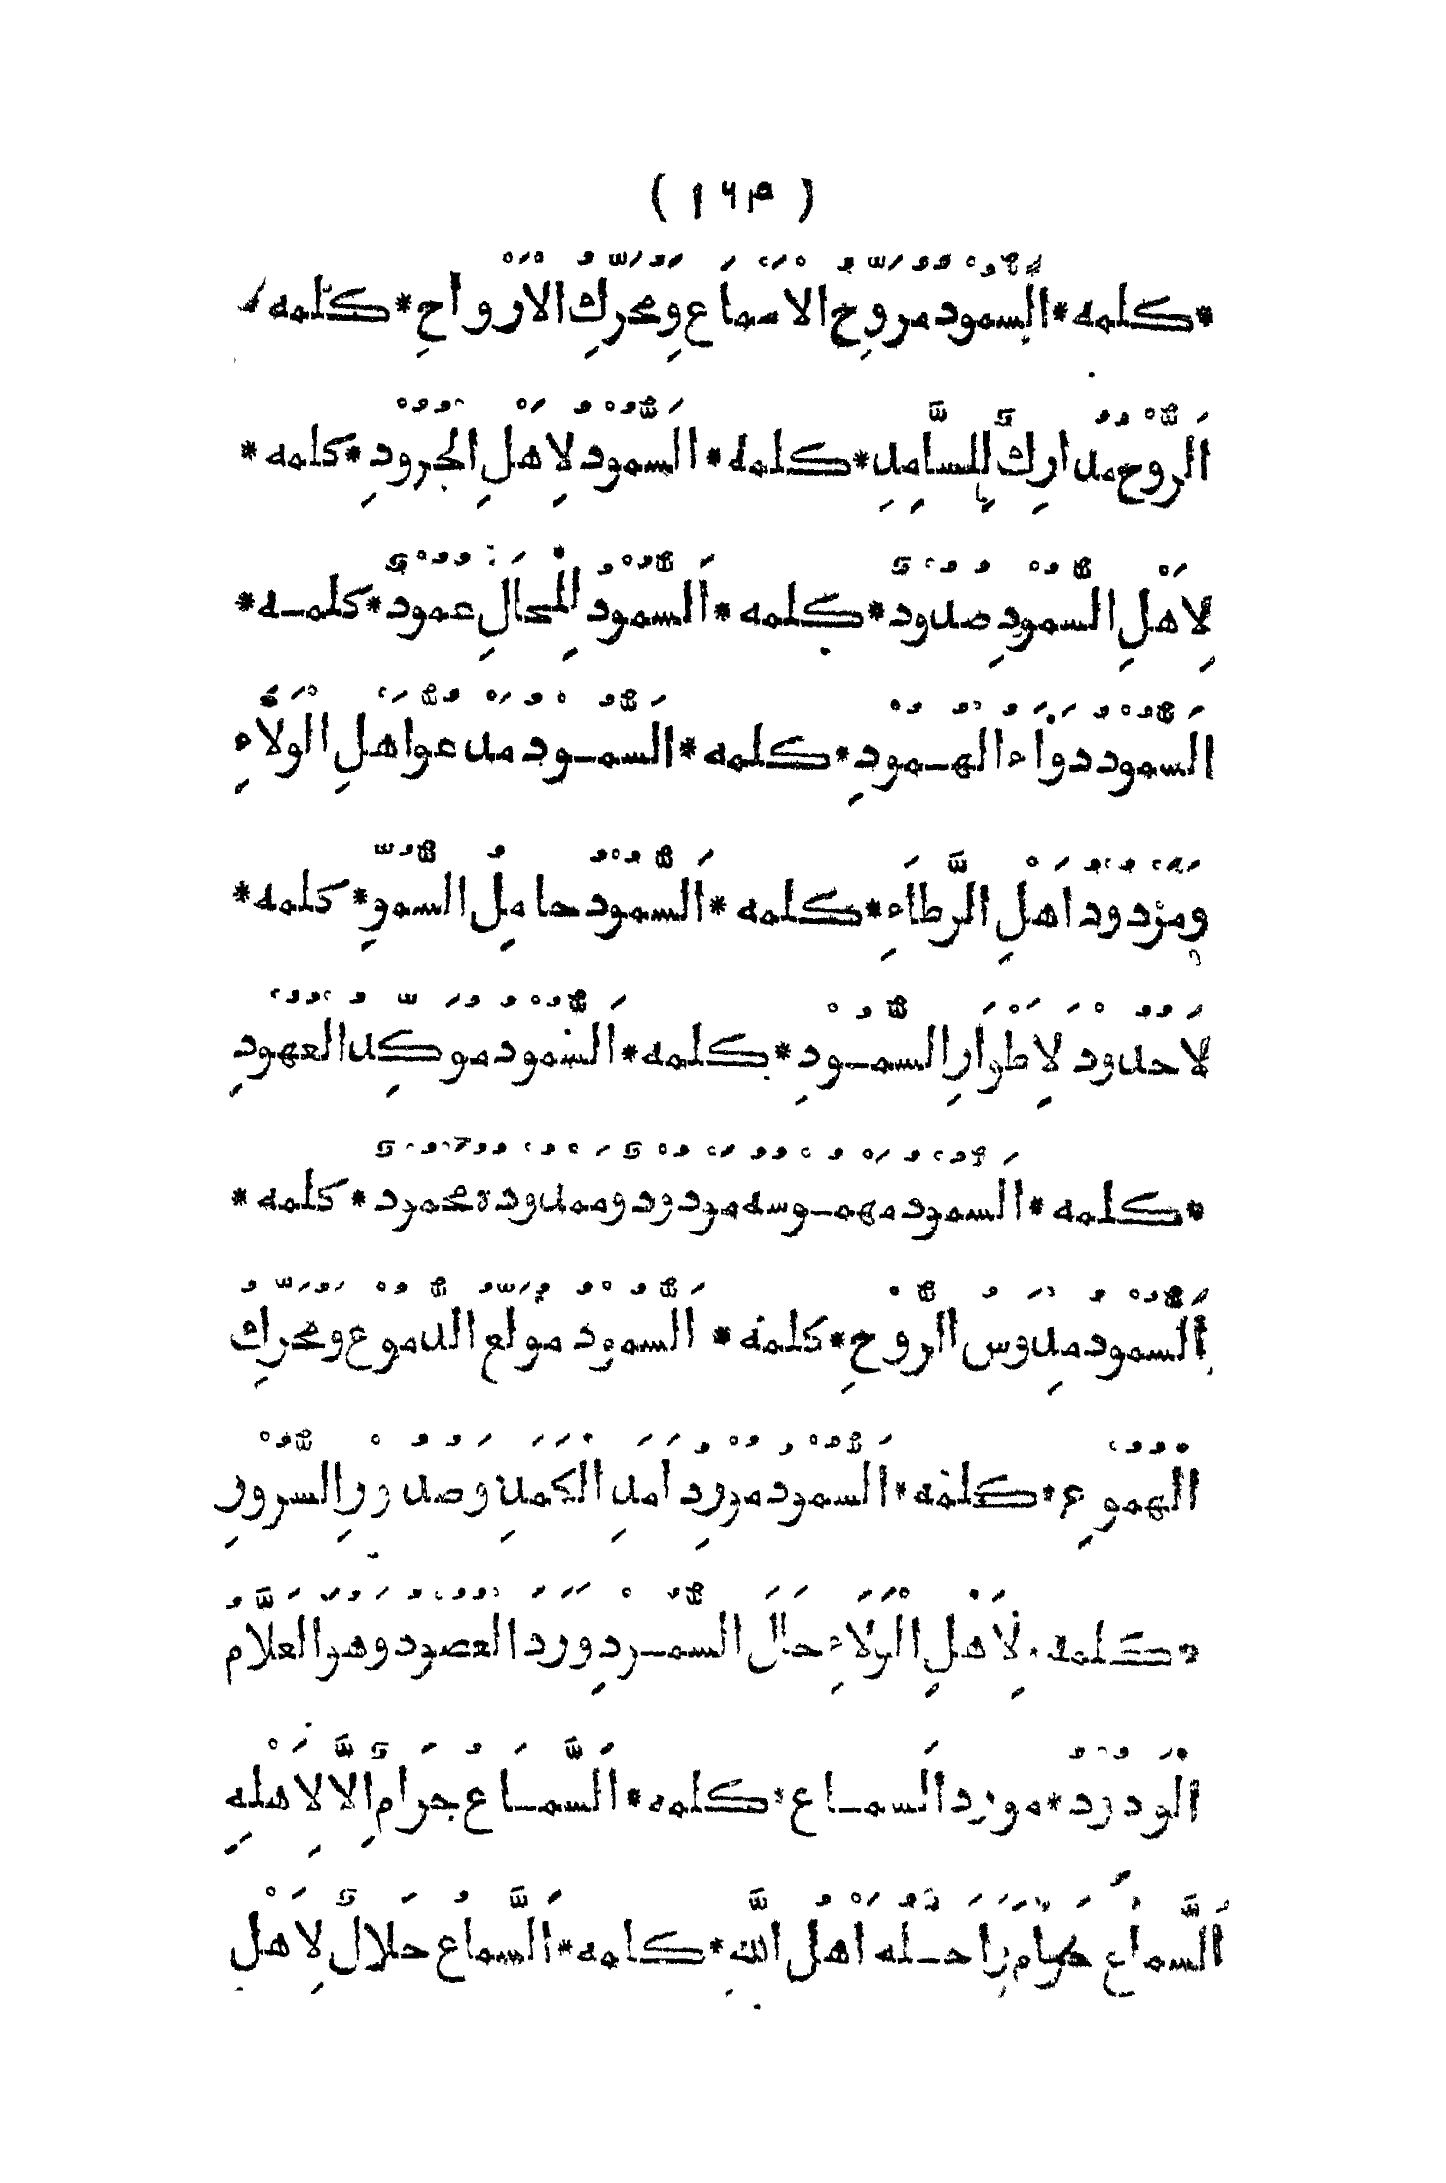 ( ١٦٣ )
* كلمه * اَلسُّمُوْدُ مُرَوِّحُ الْاَسْمَاعِ وَمُحَرِّكُ الْاَرْوَاحِ * كلمه
اَلرُّوْحُ مُدَارِكٌ لِلسَّامِدِ * كلمه * اَلسُّمُوْدُ لِاَهْلِ الْحُرُوْدِ * كلمه *
لِاَهْلِ السُّمُوْدِ صُدُوْدٌ * كلمه * اَلسُّمُوْدُ لِلْمَحَالِ عُمُوْدٌ * كلمه *
اَلسُّمُوْدُ دَوَاءُ الْهُمُوْدِ * كلمه * اَلسُّمُوْدُ مَدْعُوُّ اَهْلِ الْوَلَاءِ
وَمَرْدُوْدُ اَهْلِ الرَّطَاءِ * كلمه * اَلسُّمُوْدُ حَامِلُ السُّمُوِّ * كلمه *
لَا حُدُوْدَ لِاَطْوَارِ السُّمُوْدِ * كلمه * اَلسُّمُوْدُ مُوَكِّدُ الْعُهُوْدِ
* كلمه * اَلسمود مهموسه مودود و ممدوده محمود * كلمه *
اَلسُّمُوْدُ مِدْوَسُ الرُّوْحِ * كلمه * اَلسُّمُوْدُ مُوْلِعُ الدُّمُوْعِ وَمُحَرِّكُ
الْهُمُوْعِ * كلمه * اَلسُّمُوْدُ مُوْرِدُ اَمَدِ الْكَمَدِ وَصُدُوْرِ السُّرُوْرِ
* كلمه * لِاَهْلِ الْوَلَاءِ حَالَ السَّمْرِدِ وَرَدَ الْعُصُوْدُ وَهُوَ الْعَلَّامُ
الْوَدُوْدُ * مورد السماع * كلمه * اَلسَّمَاعُ حَرَامٌ اِلَّا لِاَهْلِهِ
اَلسَّمَاعُ حَرَامٌ اَحَلَّهُ اَهْلُ اللّٰهِ * كلمه * اَلسَّمَاعُ حَلَالٌ لِاَهْلِ